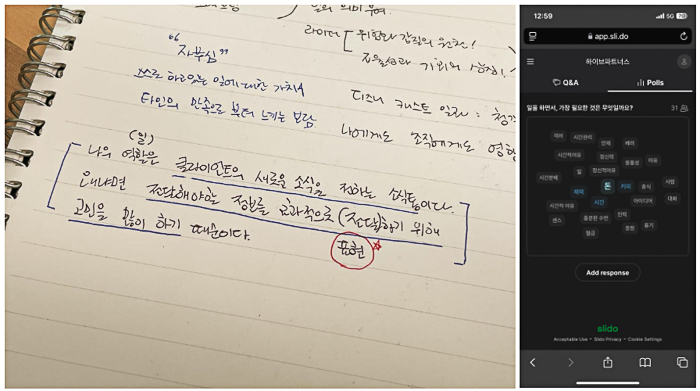 들의 의미 부여.
라이더
위험과 갑질의 원천!
"자부심"
스스로 하고있는 일에 대한 가치
타인의 만족으로 부터 느끼는 보람
디즈니 캐스트 일러 :
나에게도 조직에게도
(일)
나의 역할은 클라이언트의 새로운 소식을 전하는 소식통이다.
왜냐면 전달해야하는 정보를 효과적으로 (전달)하기 위해
고민을 많이 하기 때문이다.
표현
12:59
5G
app.sli.do
하이브파트너스
Q&A
Polls
일을 하면서, 가장 필요한 것은 무엇일까요?
31
여러
시간관리
인력
배려
시간적여유
정신력
융통성
여유
시간분배
일
정신적여유
돈
커피
휴식
사람
체력
시간적 여유
시간
아이디어
대화
센스
충분한 수면
인맥
월급
용기
Add response
slido
Acceptable Use
Slido Privacy
Cookie Settings